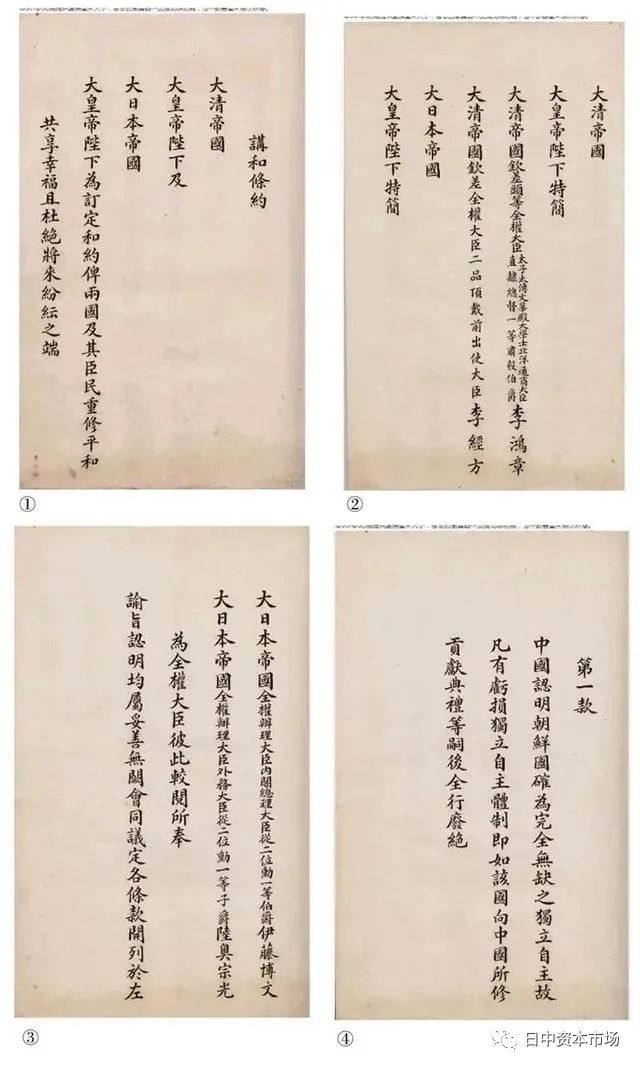 講和條約
大清帝國
大皇帝陛下及
大日本帝國
大皇帝陛下為訂定和約俾兩國及其臣民重修平和
共享幸福且杜絕將來紛紜之端
①
大清帝國
大皇帝陛下特簡
大清帝國欽差頭等全權大臣太子太傅文華殿大學士北洋通商大臣直隸總督一等肅毅伯爵李鴻章
大清帝國欽差全權大臣二品頂戴前出使大臣李經方
大日本帝國
大皇帝陛下特簡
②
大日本帝國全權辦理大臣內閣總理大臣從二位勳一等伯爵伊藤博文
大日本帝國全權辦理大臣外務大臣從二位勳一等子爵陸奧宗光
為全權大臣彼此較閱所奉
諭旨認明均屬妥善無闕會同議定各條款開列於左
③
第一款
中國認明朝鮮國確為完全無缺之獨立自主故
凡有虧損獨立自主體制即如該國向中國所修
貢獻典禮等嗣後全行廢絕
④
日中资本市场